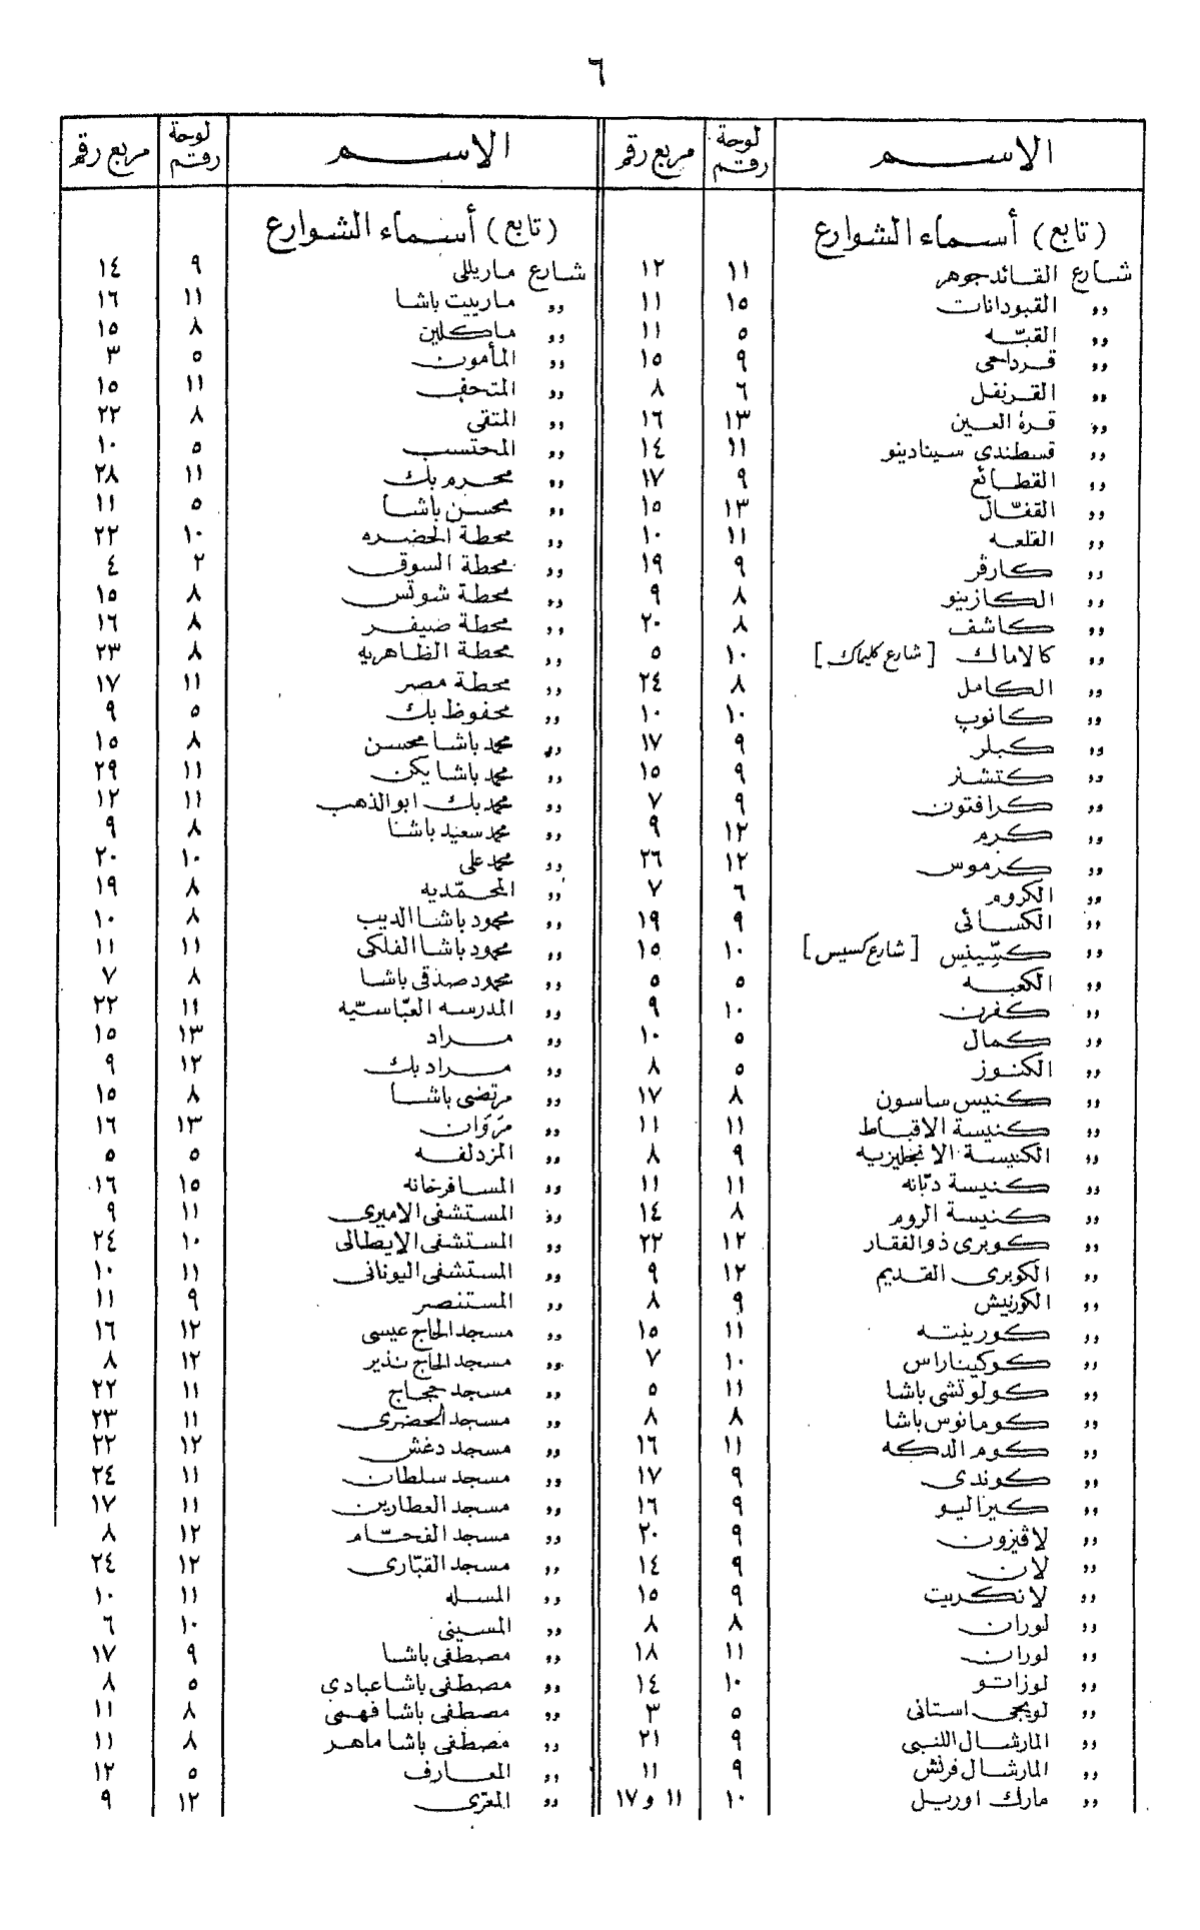 ٦
الاسم لوحة رقم مربع رقم
(تابع) أسماء الشوارع
شارع القائد جوهر ١١ ١٢
" القبودانات ١٥ ١١
" القبّه ٥ ١١
" قرداحى ٩ ١٥
" القرنفل ٦ ٨
" قرة العين ١٣ ١٦
" قسطندى سينادينو ١١ ١٤
" القطائع ٩ ١٧
" القفّال ١٣ ١٥
" القلعه ١١ ١٠
" كارڤر ٩ ١٩
" الكازينو ٨ ٩
" كاشف ٨ ٢٠
" كالاماك [شارع كليماك] ١٠ ٥
" الكامل ٨ ٢٤
" كانوپ ١٠ ١٠
" كبلر ٩ ١٧
" كتشنر ٩ ١٥
" كرافتون ٩ ٧
" كرم ١٢ ٩
" كرموس ١٢ ٢٦
" الكروم ٦ ٧
" الكسائى ٩ ١٩
" كسّينس [شارع كسيس] ١٠ ١٥
" الكعبه ٥ ٥
" كفرن ١٠ ٩
" كمال ٥ ١٠
" الكنوز ٥ ٨
" كنيس ساسون ٨ ١٧
" كنيسة الاقباط ١١ ١١
" الكنيسة الانجليزيه ٩ ٨
" كنيسة دبّانه ١١ ١١
" كنيسة الروم ٨ ١٤
" كوبرى ذو الفقار ١٢ ٢٢
" الكوبرى القديم ١٢ ٩
" الكورنيش ٩ ٨
" كورينته ١١ ١٥
" كوكيناراس ١٠ ٧
" كولوتشى باشا ١١ ٥
" كومانوس باشا ٨ ٨
" كوم الدكه ١١ ١٦
" كوندى ٩ ١٧
" كيزاليو ٩ ١٦
" لاڤيزون ٩ ٢٠
" لان ٩ ١٤
" لانكريت ٩ ١٥
" لوران ٨ ٨
" لوران ١١ ١٨
" لوزاتو ١٠ ١٤
" لويجى استانى ٥ ٣
" المارشال اللنبى ٩ ٢١
" المارشال فرنش ٩ ١١
" مارك اوريل ١٠ ١١ و ١٧
الاسم لوحة رقم مربع رقم
(تابع) أسماء الشوارع
شارع ماريللى ٩ ١٤
" مارييت باشا ١١ ١٦
" ماكلين ٨ ١٥
" المأمون ٥ ٣
" المتحف ١١ ١٥
" المتقى ٨ ٢٢
" المحتسب ٥ ١٠
" محرم بك ١١ ٢٨
" محسن باشا ٥ ١١
" محطة الحضره ١٠ ٢٢
" محطة السوق ٢ ٤
" محطة شوتس ٨ ١٥
" محطة ضيفر ٨ ١٦
" محطة الظاهريه ٨ ٢٣
" محطة مصر ١١ ١٧
" محفوظ بك ٥ ٩
" محمد باشا محسن ٨ ١٥
" محمد باشا يكن ١١ ٢٩
" محمد بك ابو الذهب ١١ ١٢
" محمد سعيد باشا ٨ ٩
" محمد على ١٠ ٢٠
" المحمّديه ٨ ١٩
" محمود باشا الديب ٨ ١٠
" محمود باشا الفلكى ١١ ١١
" محمود صدقى باشا ٨ ٧
" المدرسه العبّاسيّه ١١ ٢٢
" مراد ١٣ ١٥
" مراد بك ١٢ ٩
" مرتضى باشا ٨ ١٥
" مروان ١٣ ١٦
" المزدلفه ٥ ٥
" المسافرخانه ١٥ ١٦
" المستشفى الاميرى ١١ ٩
" المستشفى الايطالى ١٠ ٢٤
" المستشفى اليونانى ١١ ١٠
" المستنصر ٩ ١١
" مسجد الحاج عيسى ١٢ ١٦
" مسجد الحاج نذير ١٢ ٨
" مسجد حجاج ١١ ٢٢
" مسجد الحضرى ١١ ٢٣
" مسجد دغش ١٢ ٢٢
" مسجد سلطان ١١ ٢٤
" مسجد العطارين ١١ ١٧
" مسجد الفحّام ١٢ ٨
" مسجد القبّارى ١٢ ٢٤
" المسله ١١ ١٠
" المسينى ١٠ ٦
" مصطفى باشا ٩ ١٧
" مصطفى باشا عبادى ٥ ٨
" مصطفى باشا فهمى ٨ ١١
" مصطفى باشا ماهر ٨ ١١
" المعارف ٥ ١٢
" المعرّى ١٢ ٩